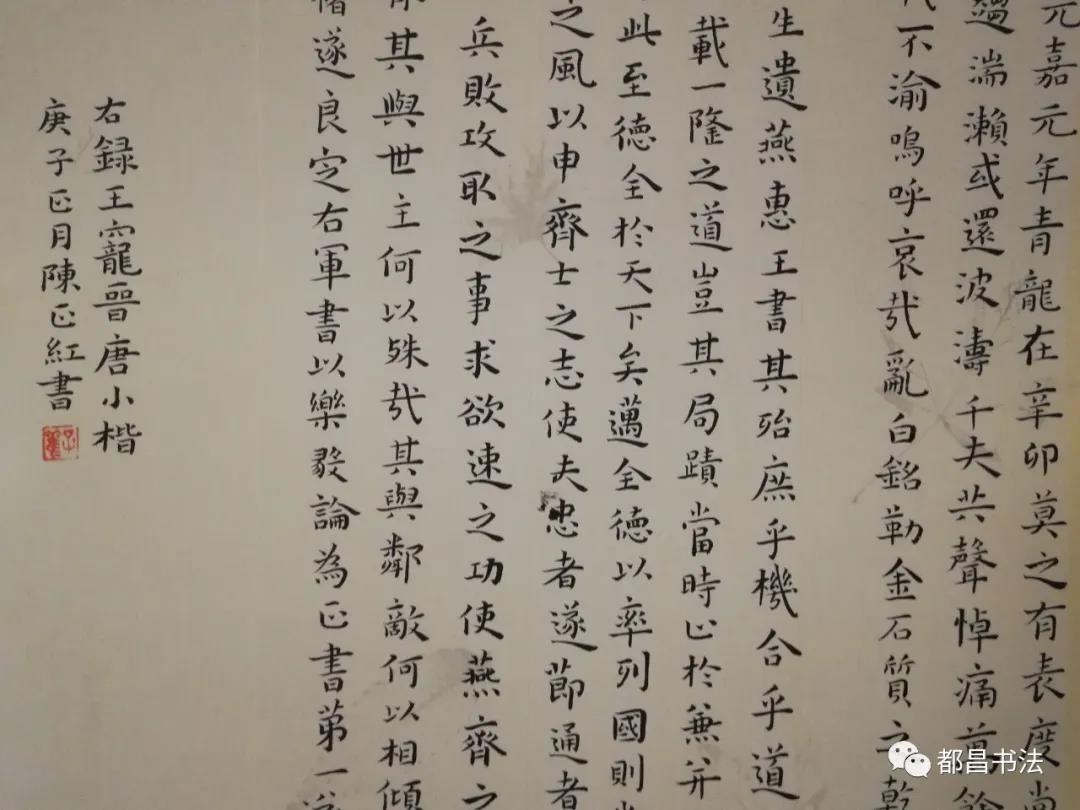 元嘉元年青龍在辛卯莫之有表度尚
湍瀨或還波濤千夫共聲悼痛
不渝嗚呼哀哉亂曰銘勒金石質之乾
生遺燕惠王書其殆庶乎機合乎道
載一隆之道豈其局蹟當時止於兼并
此至德全於天下矣邁全德以率列國則
之風以申齊士之志使夫忠者遂節通者
兵敗攻取之事求欲速之功使燕齊之
其與世主何以殊哉其與鄰敵何以相傾
褚遂良定右軍書以樂毅論為正書第一
右録王寵晉唐小楷
庚子正月陳正紅書
都昌书法